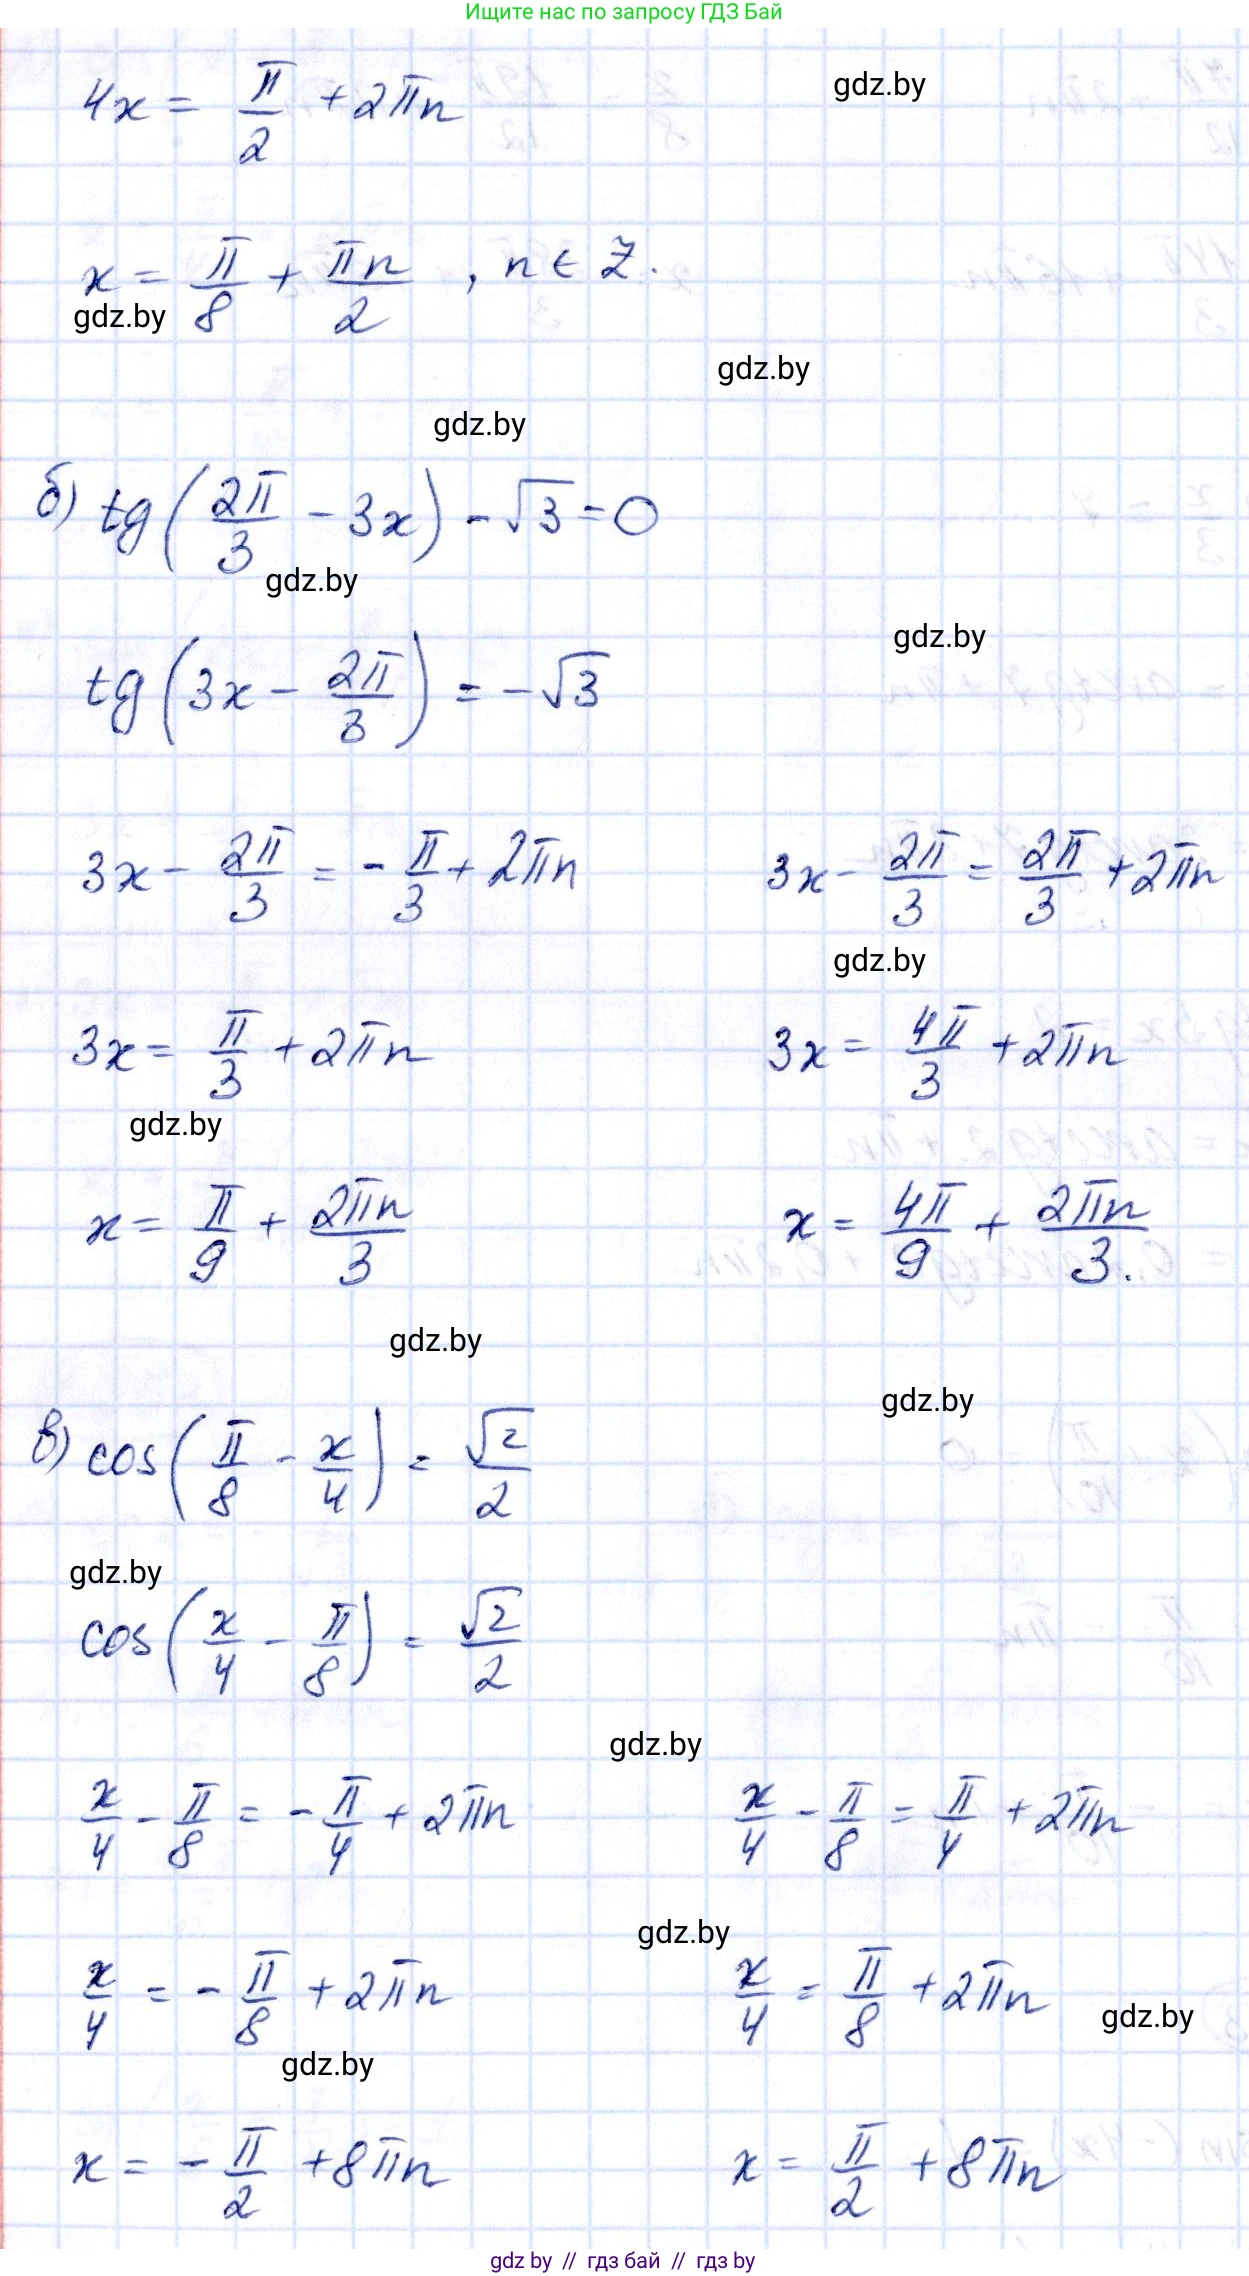 Ищите нас по запросу ГДЗ Бай
4x = π/2 + 2πn
gdz.by
x = π/8 + πn/2 , n ∈ Z.
gdz.by
gdz.by
gdz.by
б) tg(2π/3 - 3x) - √3 = 0
gdz.by
gdz.by
tg(3x - 2π/3) = -√3
3x - 2π/3 = -π/3 + 2πn    3x - 2π/3 = 2π/3 + 2πn
gdz.by
3x = π/3 + 2πn    3x = 4π/3 + 2πn
gdz.by
x = π/9 + 2πn/3    x = 4π/9 + 2πn/3.
gdz.by
gdz.by
в) cos(π/8 - x/4) = √2/2
gdz.by
cos(x/4 - π/8) = √2/2
gdz.by
x/4 - π/8 = -π/4 + 2πn    x/4 - π/8 = π/4 + 2πn
gdz.by
x/4 = -π/8 + 2πn    x/4 = π/8 + 2πn
gdz.by
gdz.by
x = -π/2 + 8πn    x = π/2 + 8πn
gdz by // гдз бай // гдз by